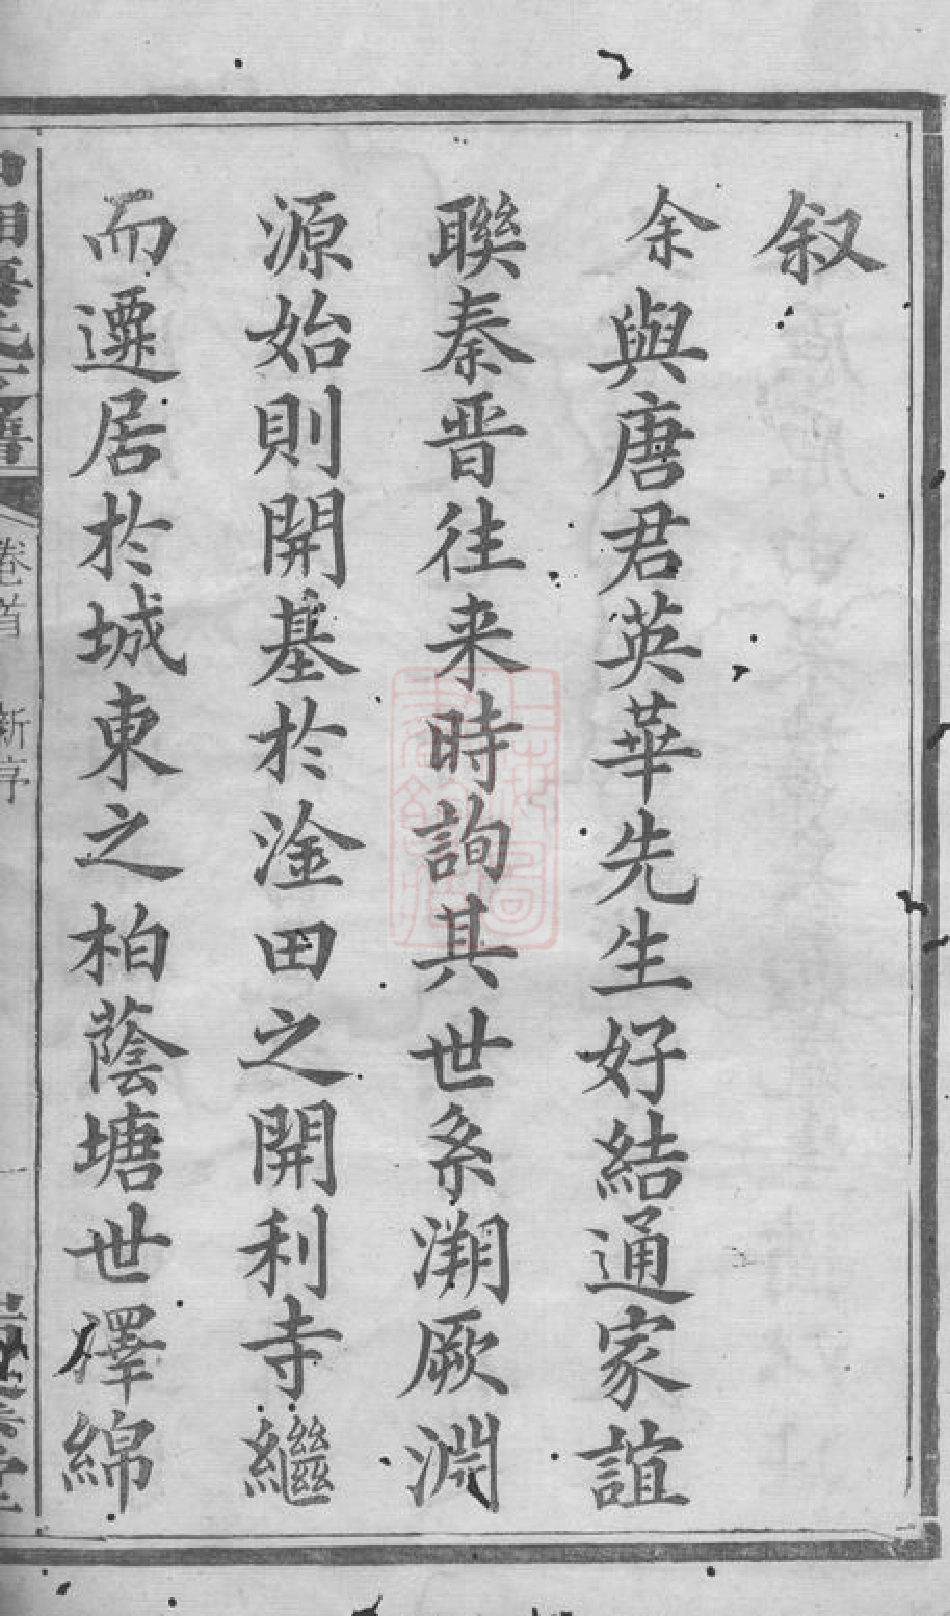 叙
余與唐君英華先生好結通家誼
聯秦晋往来時詢其世系溯厥淵
源始則開基於淦田之開利寺繼
而遷居於城東之柏蔭塘世澤綿
卷首 新序